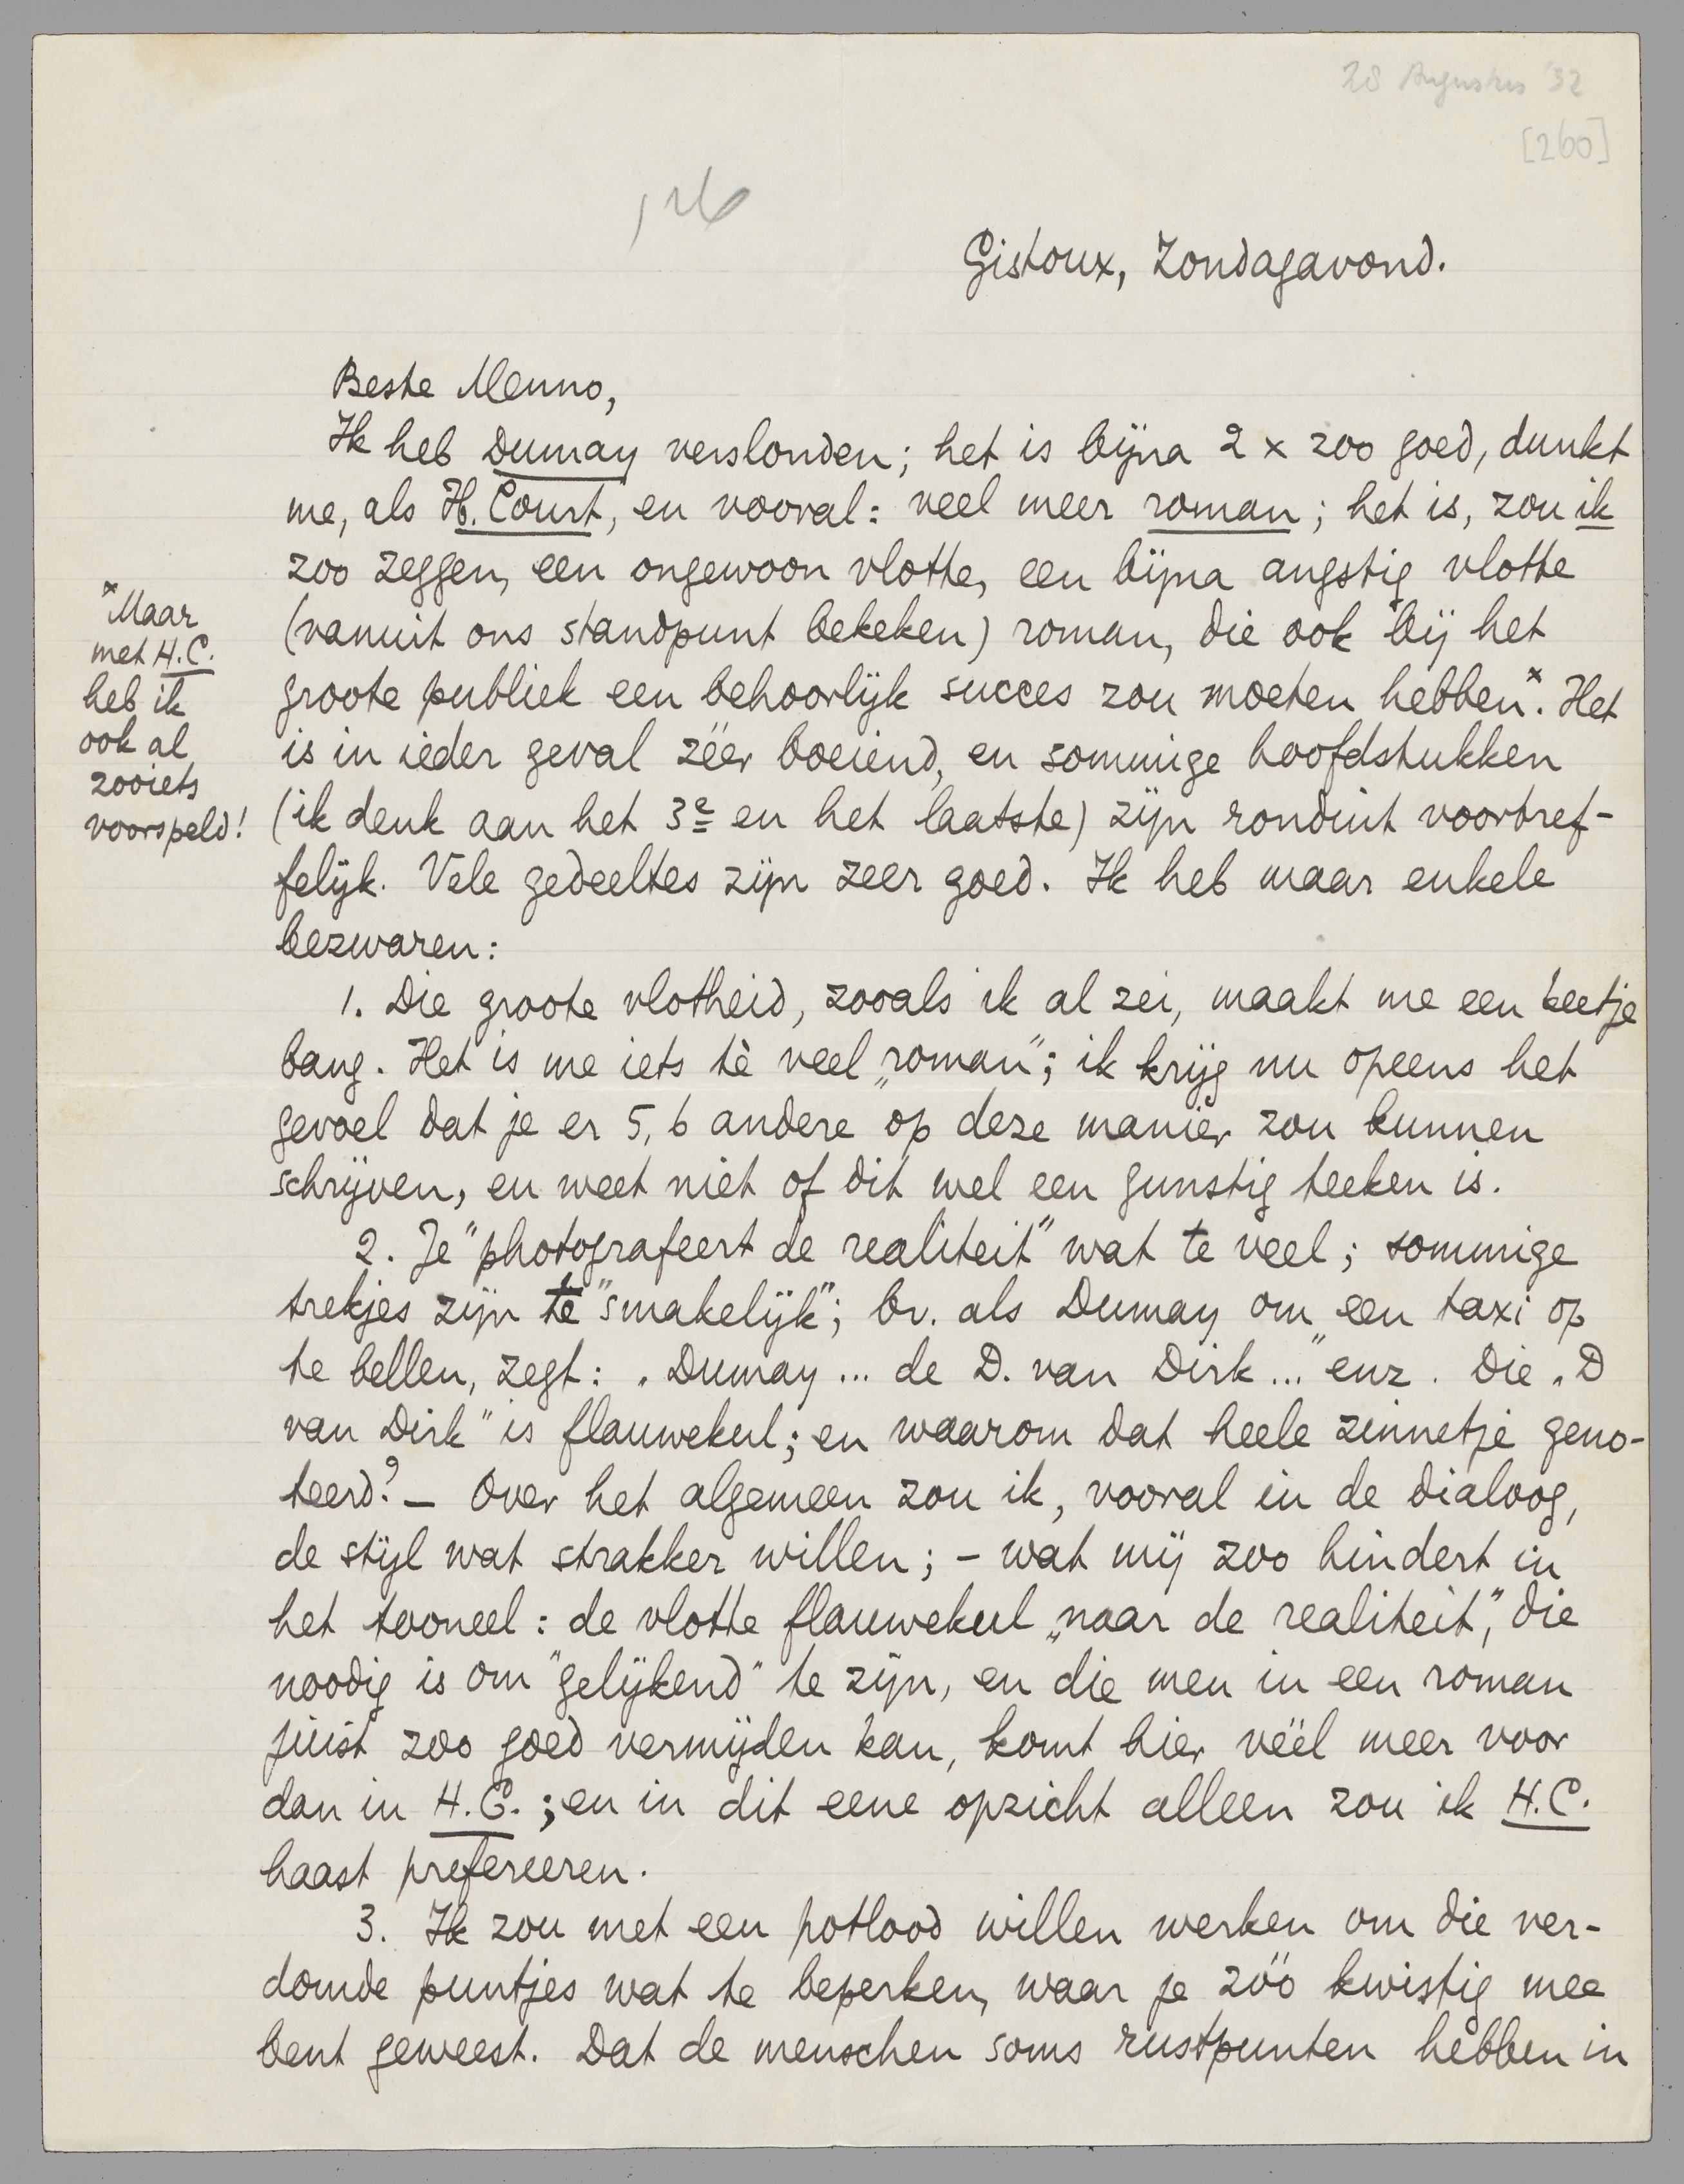 28 Augustus '32
[260]
Gistoux, Zondagavond.
Beste Menno,
Ik heb Dumay verslonden; het is bijna 2 x zoo goed, dunkt
me, als H. Court, en vooral: veel meer roman; het is, zou ik
zoo zeggen, een ongewoon vlotte, een bijna angstig vlotte
(vanuit ons standpunt bekeken) roman, die ook bij het
groote publiek een behoorlijk succes zou moeten hebben.ˣ Het
is in ieder geval zéér boeiend, en sommige hoofdstukken
(ik denk aan het 3e en het laatste) zijn ronduit voortref-
felijk. Vele gedeeltes zijn zeer goed. Ik heb maar enkele
bezwaren:
ˣMaar
met H.C.
heb ik
ook al
zooiets
voorspeld!
1. Die groote vlotheid, zooals ik al zei, maakt me een beetje
bang. Het is me iets tè veel „roman"; ik krijg nu opeens het
gevoel dat je er 5, 6 andere op deze manier zou kunnen
schrijven, en weet niet of dit wel een gunstig teeken is.
2. Je "photografeert de realiteit" wat te veel; sommige
trekjes zijn te "smakelijk"; bv. als Dumay om een taxi op
te bellen, zegt: „Dumay... de D. van Dirk..." enz. Die „D
van Dirk" is flauwekul; en waarom dat heele zinnetje geno-
teerd? - Over het algemeen zou ik, vooral in de dialoog,
de stijl wat strakker willen; - wat mij zoo hindert in
het tooneel: de vlotte flauwekul „naar de realiteit", die
noodig is om "gelijkend" te zijn, en die men in een roman
juist zoo goed vermijden kan, komt hier véél meer voor
dan in H.C.; en in dit eene opzicht alleen zou ik H.C.
haast prefereeren.
3. Ik zou met een potlood willen werken om die ver-
domde puntjes wat te beperken, waar je zóó kwistig mee
bent geweest. Dat de menschen soms rustpunten hebben in